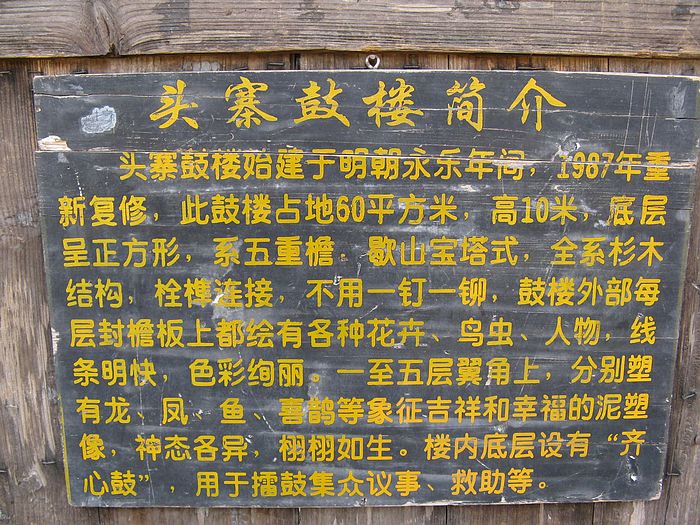 头寨鼓楼简介
头寨鼓楼始建于明朝永乐年间，1987年重
新复修，此鼓楼占地60平方米，高10米，底层
呈正方形，系五重檐。歇山宝塔式，全系杉木
结构，栓榫连接，不用一钉一铆，鼓楼外部每
层封檐板上都绘有各种花卉、鸟虫、人物，线
条明快，色彩绚丽。一至五层翼角上，分别塑
有龙、凤、鱼、喜鹊等象征吉祥和幸福的泥塑
像，神态各异，栩栩如生。楼内底层设有“齐
心鼓”，用于擂鼓集众议事、救助等。